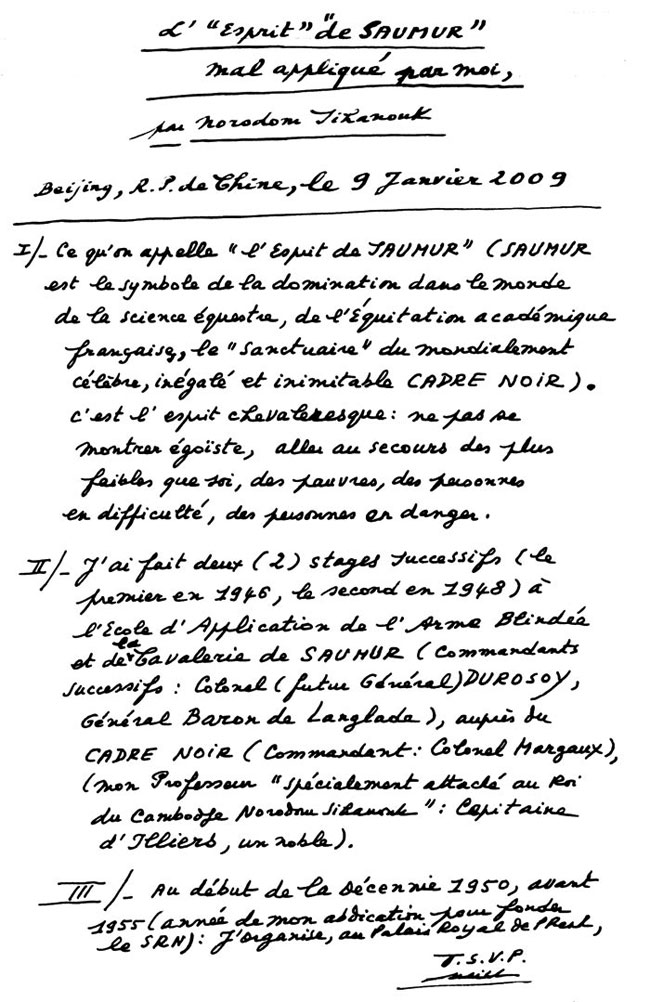 L' "Esprit" "de SAUMUR"
mal appliqué par moi,
par Norodom Sihanouk
Beijing, R.P. de Chine, le 9 Janvier 2009
I/- Ce qu'on appelle "l'Esprit de SAUMUR" (SAUMUR
est le symbole de la domination dans le monde
de la science équestre, de l'Équitation académique
française, le "Sanctuaire" du mondialement
célèbre, inégalé et inimitable CADRE NOIR).
c'est l'esprit chevaleresque: ne pas se
montrer égoïste, aller au secours des plus
faibles que soi, des pauvres, des personnes
en difficulté, des personnes en danger.
II/- J'ai fait deux (2) stages successifs (le
premier en 1946, le second en 1948) à
l'Ecole d'Application de l'Arme Blindée
et de la Cavalerie de SAUMUR (Commandants
successifs : Colonel (futur Général) DUROSOY,
Général Baron de Langlade), auprès du
CADRE NOIR (Commandant: Colonel Margaux),
(mon Professeur "spécialement attaché au Roi
du Cambodge Norodom Sihanouk" : Capitaine
d'Illiers, un noble).
III/- Au début de la décennie 1950, avant
1955 (année de mon abdication pour fonder
le SRN): J'organise, au Palais Royal de PPenh,
T.S.V.P.